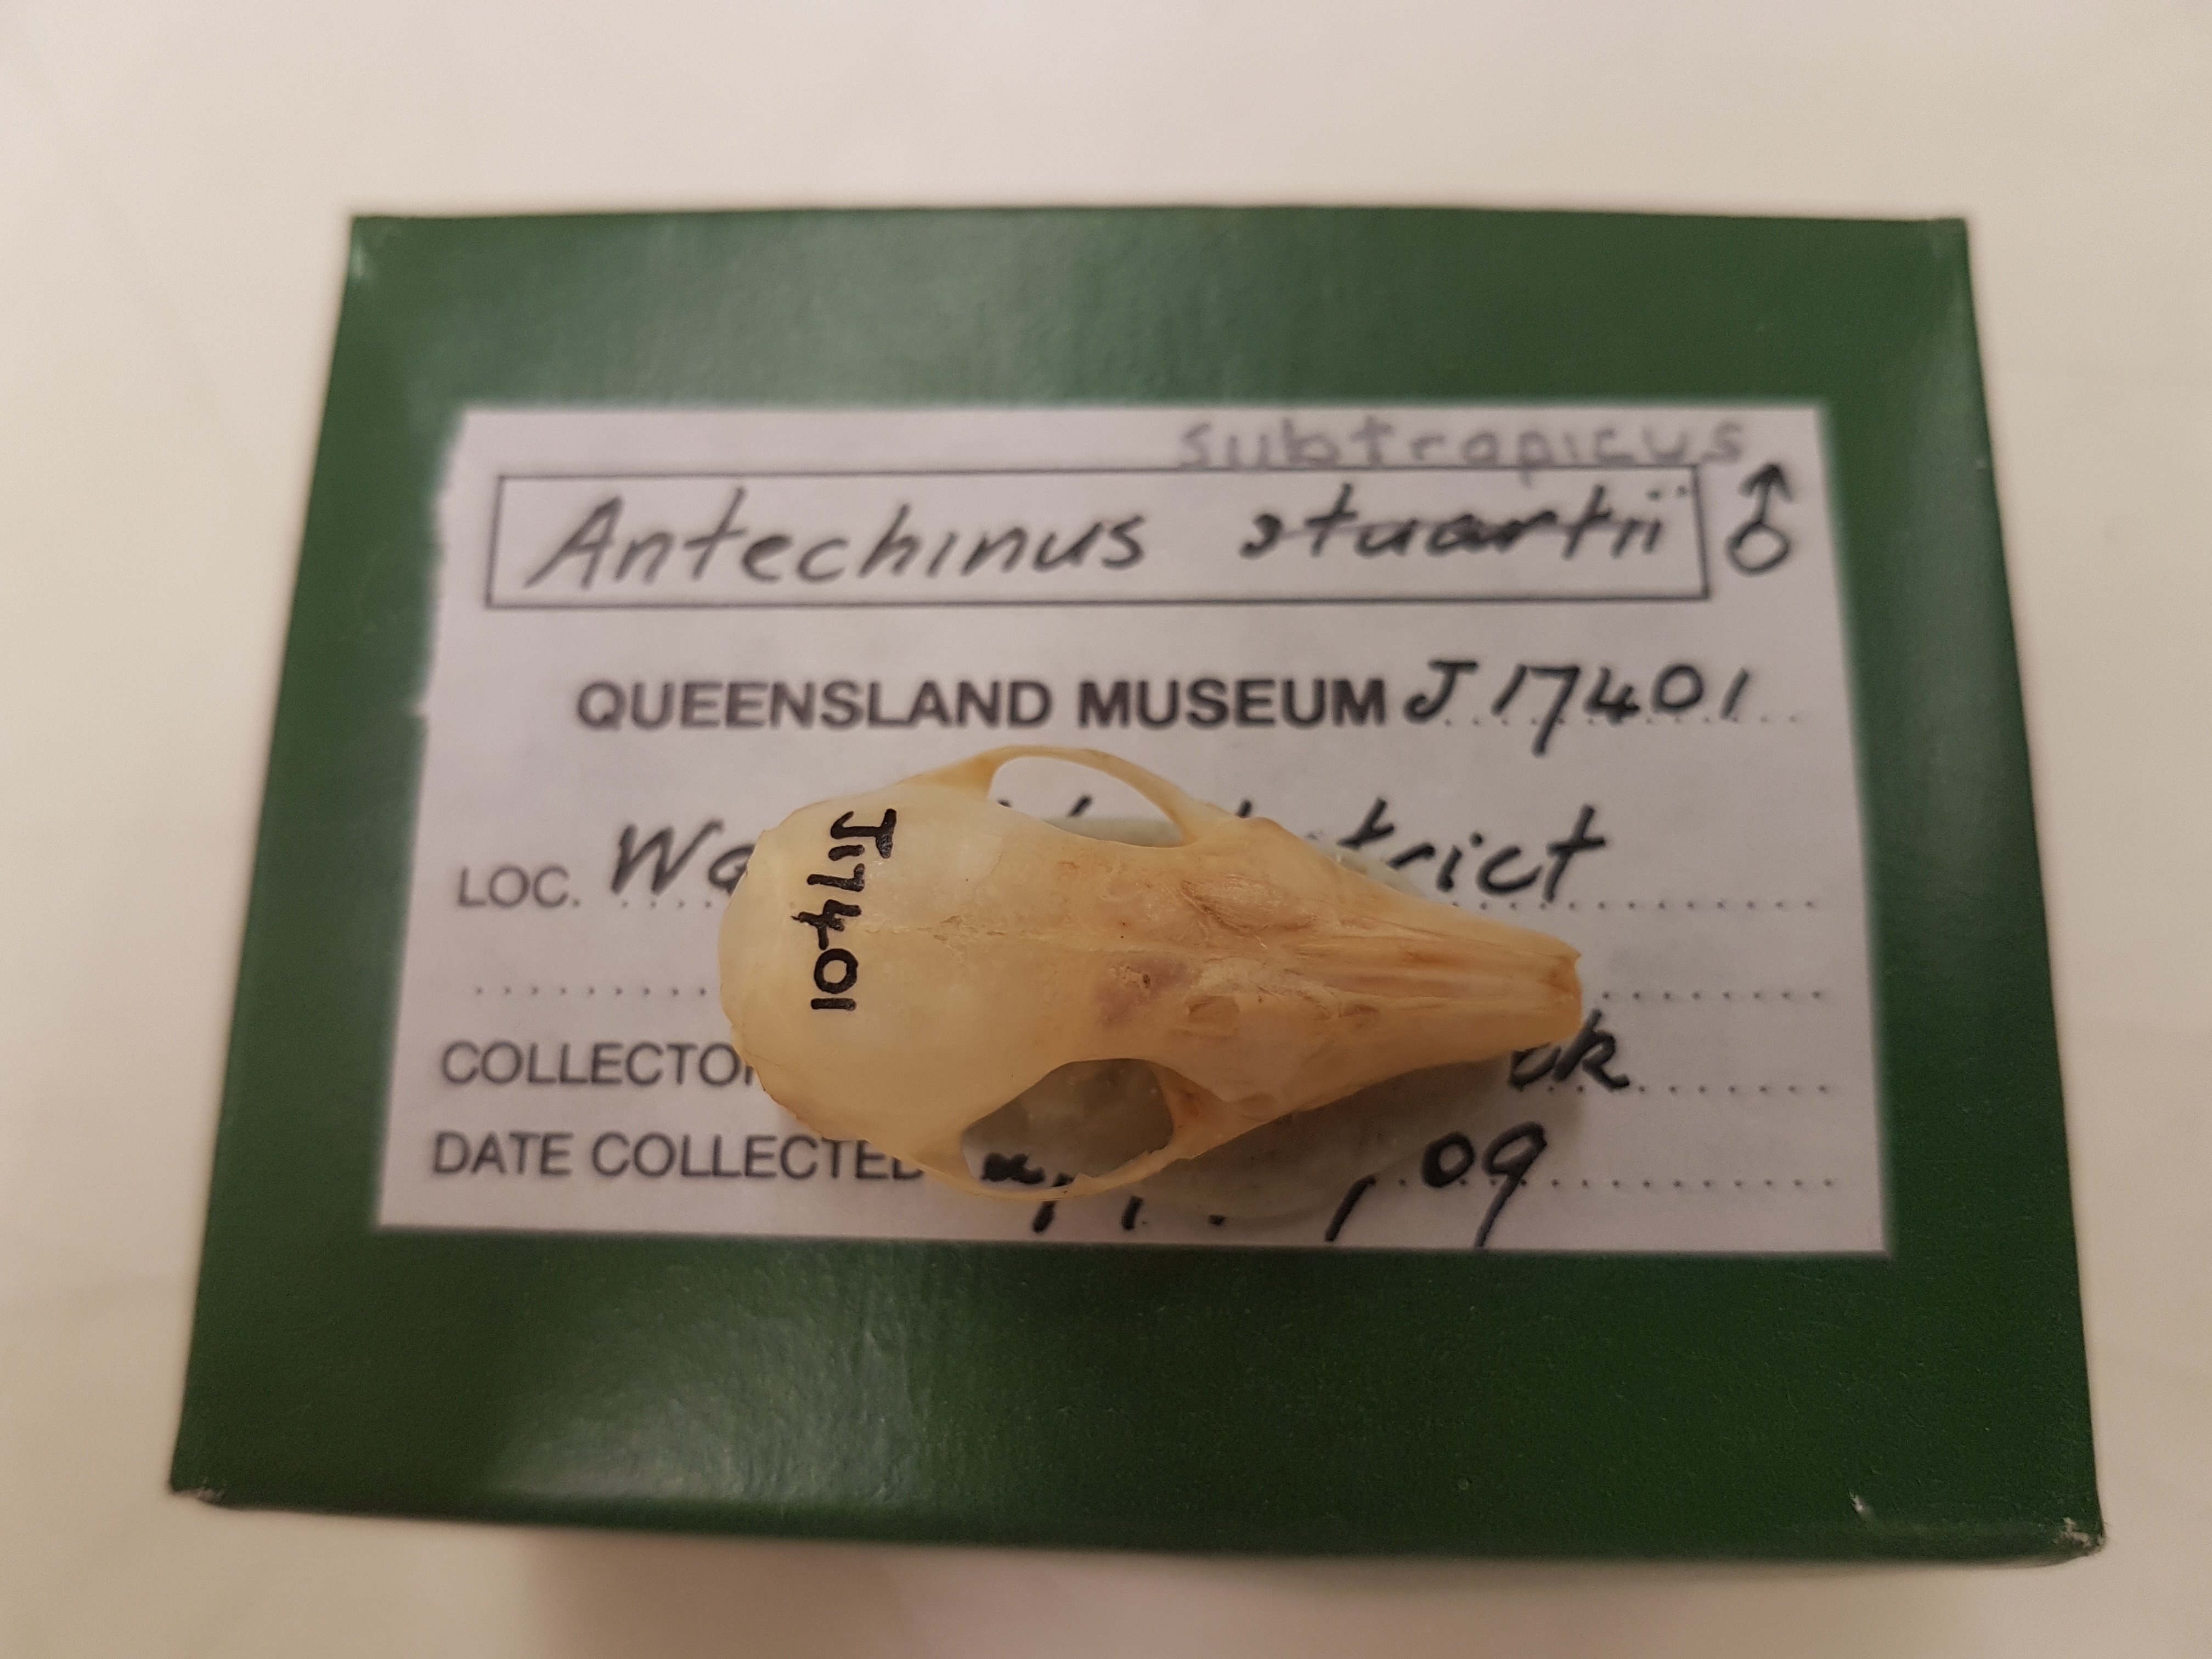 subtropicus
Antechinus stuartii ♂
QUEENSLAND MUSEUM J17401
LOC.
COLLECTOR
DATE COLLECTED
J17401